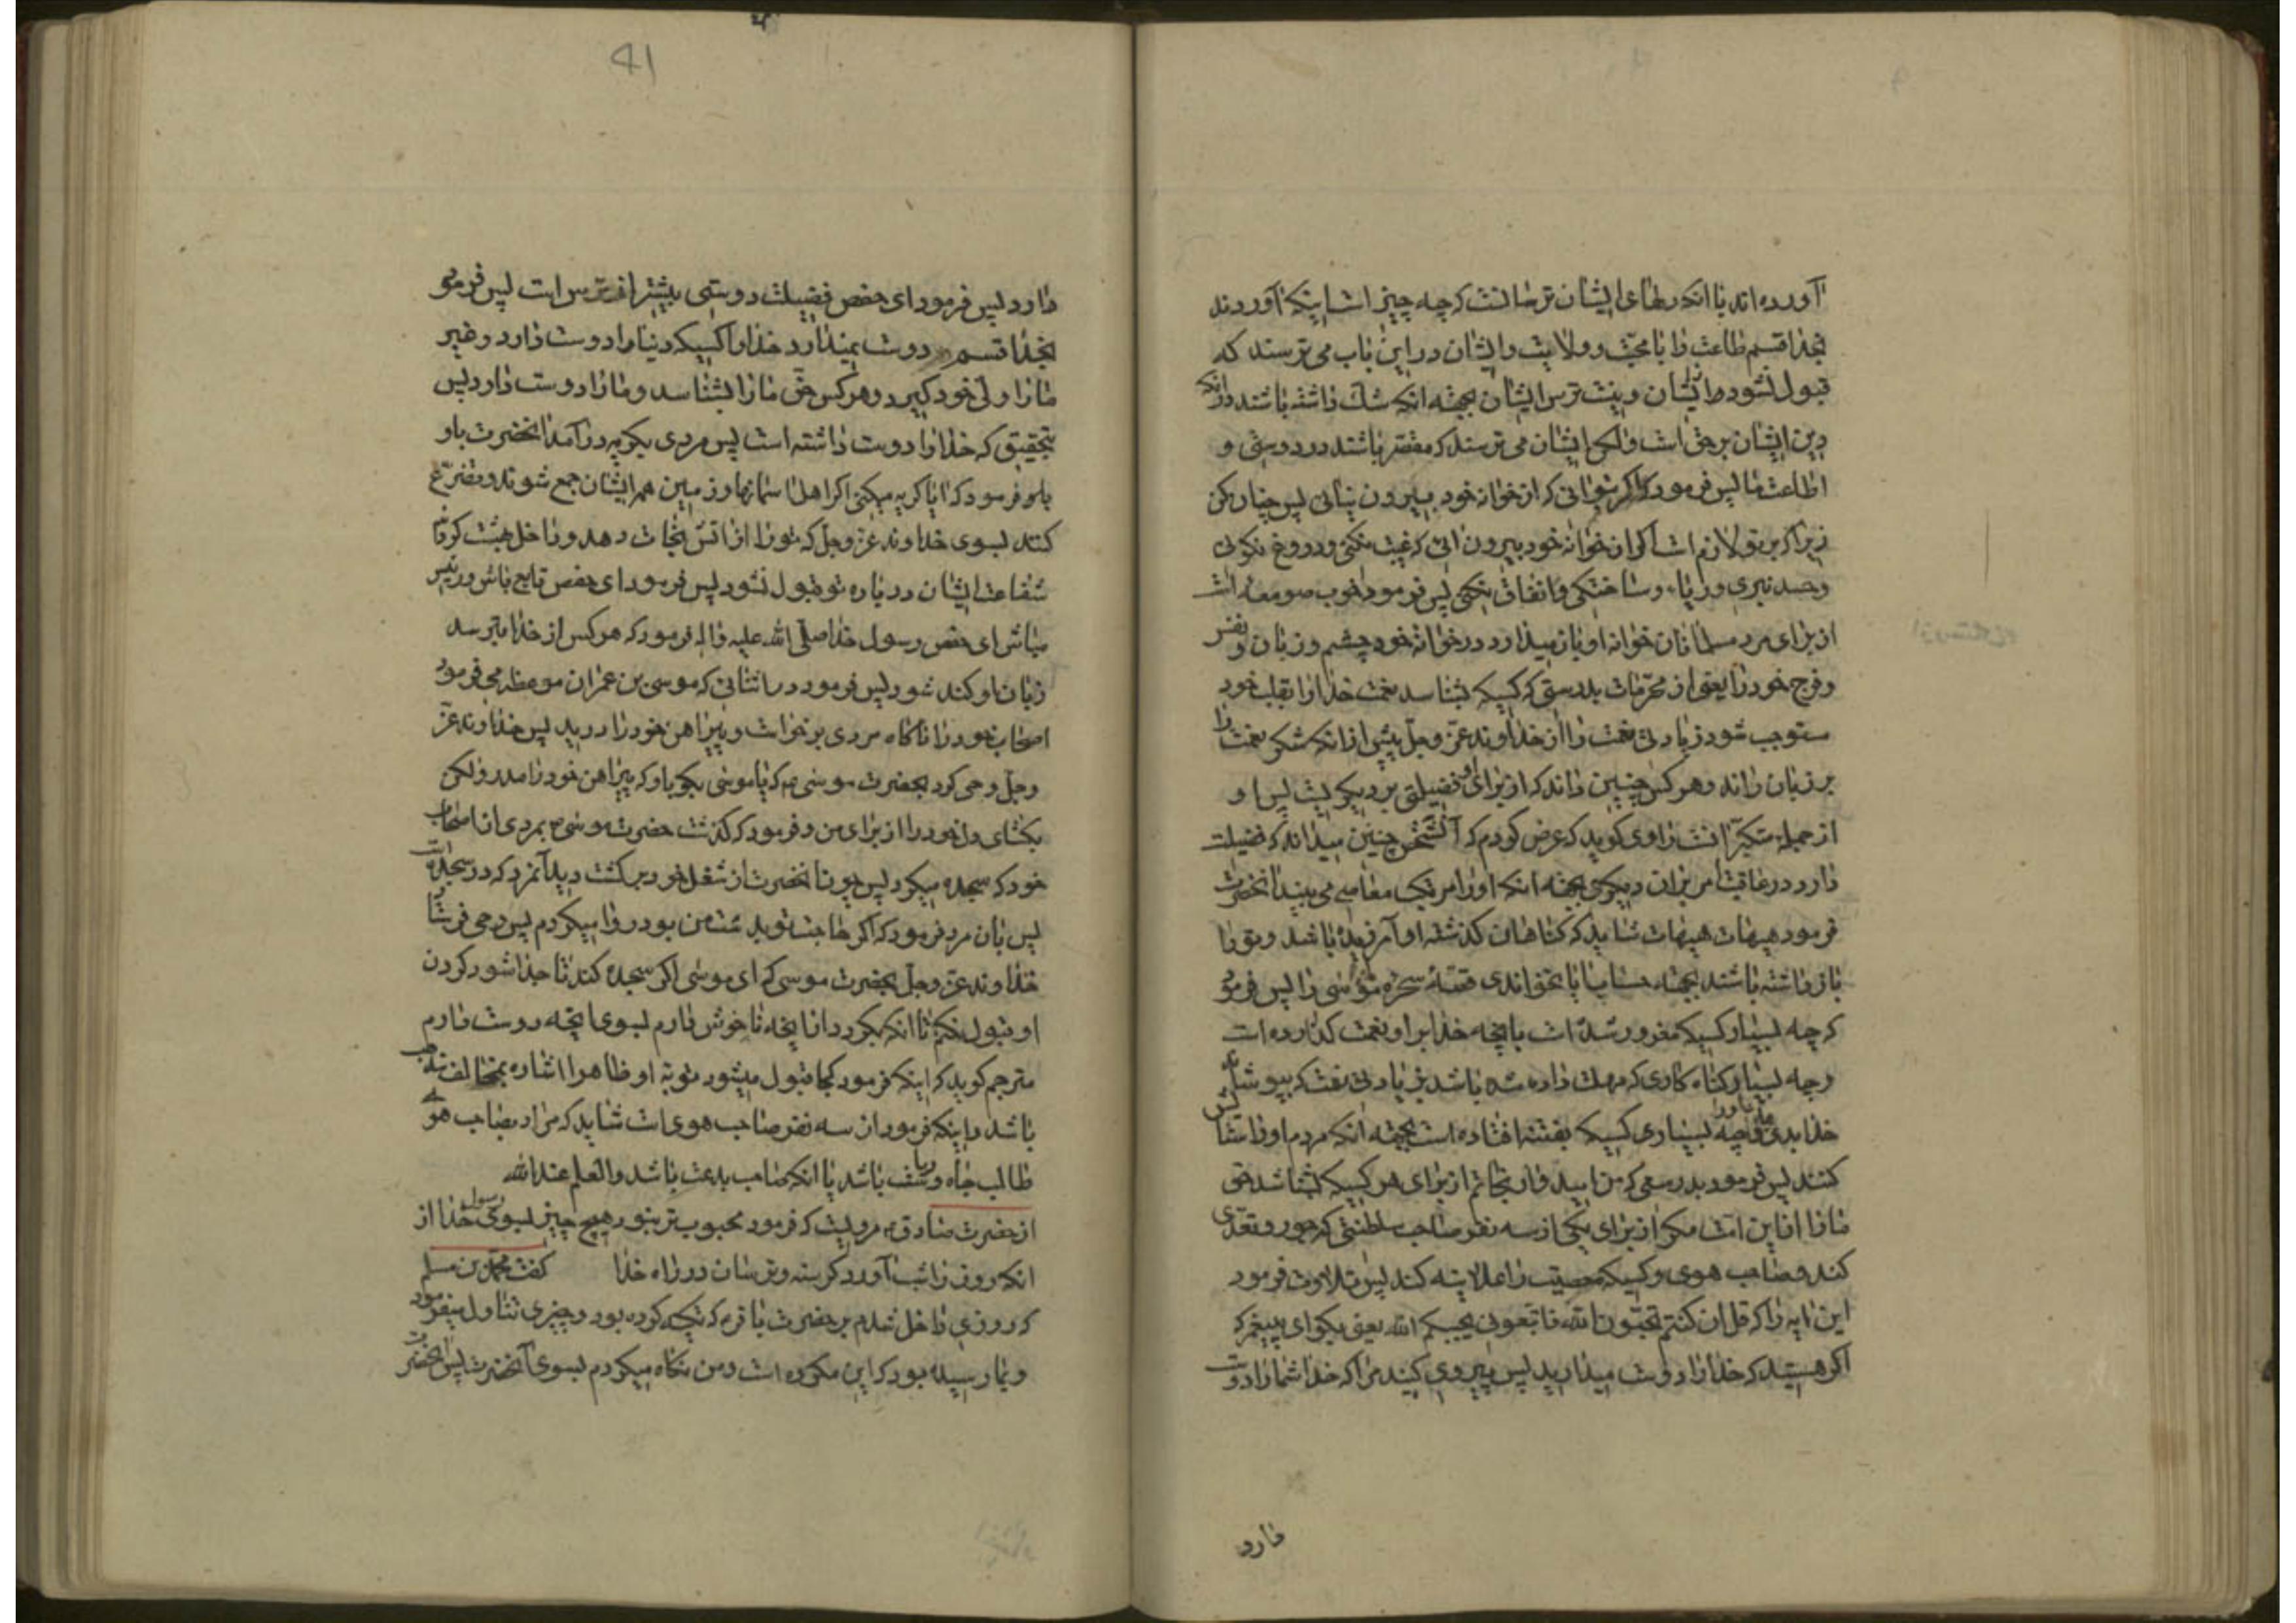 آورده‌اند با آنکه دلهای ایشان ترسانست که چه چیز است اینکه آوردند
بخدا قسم طاعت را با محبّت و ولایت و ایشان در این باب می‌ترسند که
قبول نشود از ایشان و نیست ترس ایشان بجهة آنکه شک داشته باشند در آنکه
دین ایشان بر حق است و لکن ایشان می‌ترسند که مقصّر باشند در دوستی و
اطاعت ما پس فرمود که اگر بتوانی که از خوانه خود بیرون نیائی پس چنان کن
زیرا که بر تو لازم است اگر از خوانه خود بیرون آئی که غیبت نکنی و دروغ نگوئی
و حسد نبری و ریاء و ساختگی و نفاق نکنی پس فرمود خوب صومعه است
از برای مرد مسلمانان خوانه او باز میدارد در خوانه خود چشم و زبان و نفس
و فرج خود را یعنی از محرّمات بدرستی که کسیکه بشناسد نعمت خدا را بقلب خود
مستوجب شود زیادتی نعمت را از خداوند عزّ و جلّ پیش از آنکه شکر نعمت را
بر زبان راند و هر کس چنین داند که از برای او فضیلتی بر دیگریست پس او
از جمله متکبّرانست راوی گوید که عرض کردم که آن شخص چنین میداند که فضیلت
دارد در عافیت امر بر آن دیگری بجهة آنکه او را مرتکب معاصی می‌بیند آنحضرت
فرمود هیهات هیهات شاید که گناهان گذشته او آمرزیده باشد و تو را
باز داشته باشند بجهة حساب آیا نخواندی قصّه سحره موسی را پس فرمود
که چه بسیار کسیکه مغرور شده است بآنچه خدا بر او نعمت گذارده است
و چه بسیار گناه کاری که مهلت داده شده باشد بزیادتی نعمت که بپوشاند
خدا بدی ما و او را و چه بسیاری کسیکه بفتنه افتاده است بجهة آنکه مردم او را ستایش
کنند پس فرمود بدرستی که من امیدوار نجاتم از برای هر کسیکه بشناسد حق
ما را از این امّت مگر از برای یکی از سه نفر صاحب سلطنتی که جور و تعدّی
کند و صاحب هوی و کسیکه معصیت را علانیه کند پس تلاوت فرمود
این آیه را که قل ان کنتم تحبّون الله فاتّبعونی یحببکم الله یعنی بگو ای پیغمبر که
اگر هستید که خدا را دوست میدارید پس پیروی کنید مرا که خدا شما را دوست
دارد
41
دارد پس فرمود ای حفص فضیلت دوستی بیشتر از ترس است پس فرمود
بخدا قسم دوست نمیدارد خدا را کسیکه دنیا را دوست دارد و غیر
ما را ولی خود گیرد و هر کس حقّ ما را بشناسد و ما را دوست دارد پس
بتحقیق که خدا را دوست داشته است پس مردی بگریه درآمد آنحضرت باو
فرمود که آیا گریه میکنی اگر اهل آسمانها و زمین همه ایشان جمع شوند و تضرّع
کنند بسوی خداوند عزّ و جلّ که تو را از آتش نجات دهد و داخل بهشت کرداند
شفاعت ایشان در باره تو قبول نشود پس فرمود ای حفص تابع باش و رئیس
مباش ای حفص رسول خدا صلّی الله علیه و اله فرمود که هر کس از خدا بترسد
زبان او کند شود پس فرمود در اثنائی که موسی بن عمران موعظه می‌فرمود
اصحاب خود را ناگاه مردی برخواست و پیراهن خود را درید پس خداوند عزّ
و جلّ وحی کرد بحضرت موسی ع که یا موسی بگو باو که پیراهن خود را مدر و لکن
بگشای دل خود را از برای من و فرمود که گذشت حضرت موسی ع بمردی از اصحاب
خود که سجده میکرد پس چون آنحضرت از شغل خود برگشت دید آنمرد که در سجده است
پس بآن مرد فرمود که اگر حاجت تو بدست من بود روا میکردم پس وحی فرستاد
خداوند عزّ و جلّ بحضرت موسی که ای موسی اگر سجده کند تا جدا شود گردن
او قبول نکنم تا آنکه بگردد از آنچه ناخوش دارم بسوی آنچه دوست دارم
مترجم گوید که اینکه فرمود کجا قبول میشود توبه او ظاهرا اشاره بمخالف مذهب
باشد و اینکه فرمود از سه نفر صاحب هوی است شاید که مراد بصاحب هوی
طالب جاه و ریاست باشد یا آنکه صاحب بدعت باشد و العلم عند الله
از حضرت صادق ع مرویست که فرمود محبوب‌تر نبود هیچ چیز بسوی رسول خدا از
آنکه روز را شب آورد گرسنه و ترسان در راه خدا گفت محمّد بن مسلم
که روزی داخل شدم بر حضرت باقر ع که تکیه کرده بود و چیزی تناول میفرمود
و بما رسیده بود که این مکروه است و من نگاه میکردم بسوی آنحضرت پس آنحضرت